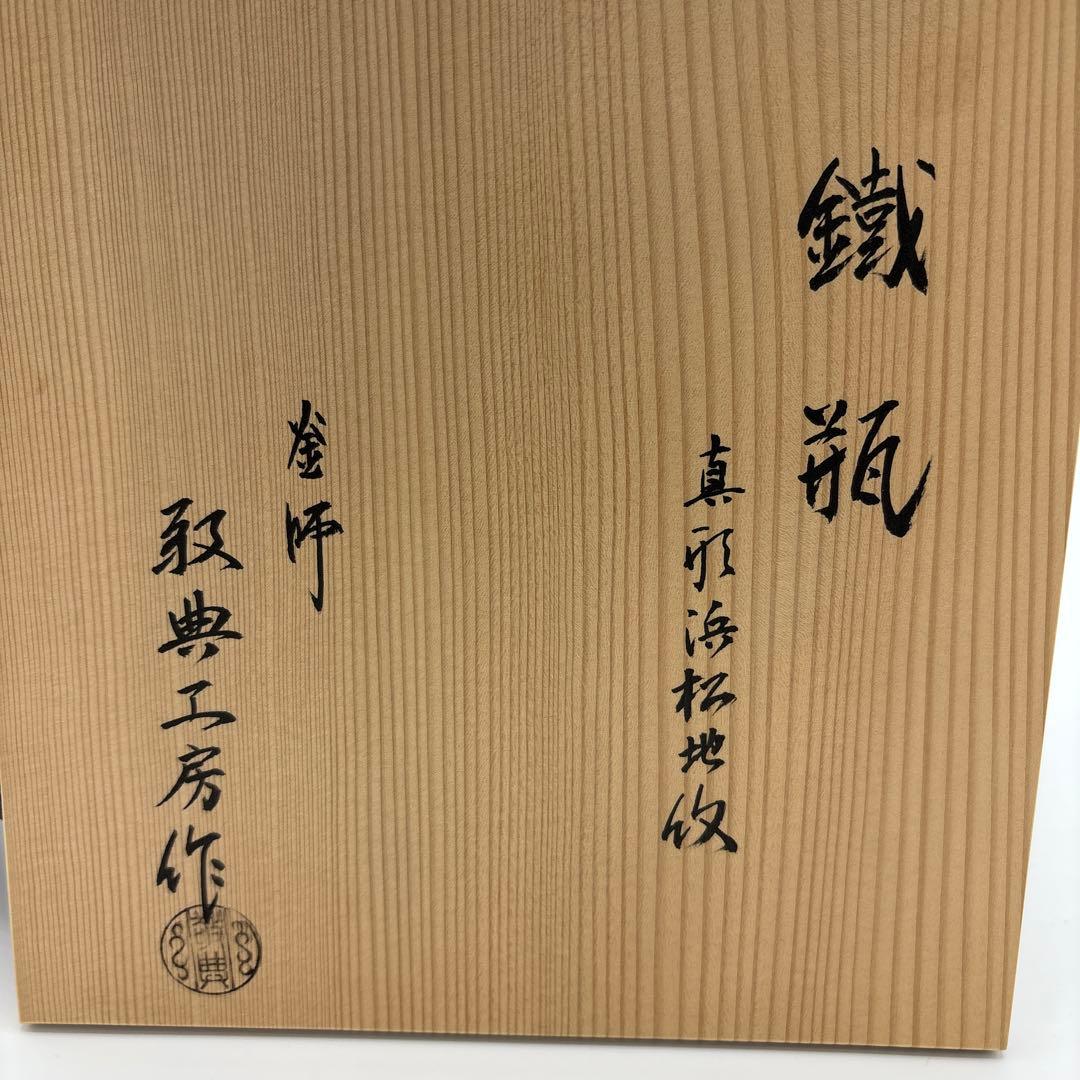 鐵瓶
真形浜松地紋
釜師
敬典工房作